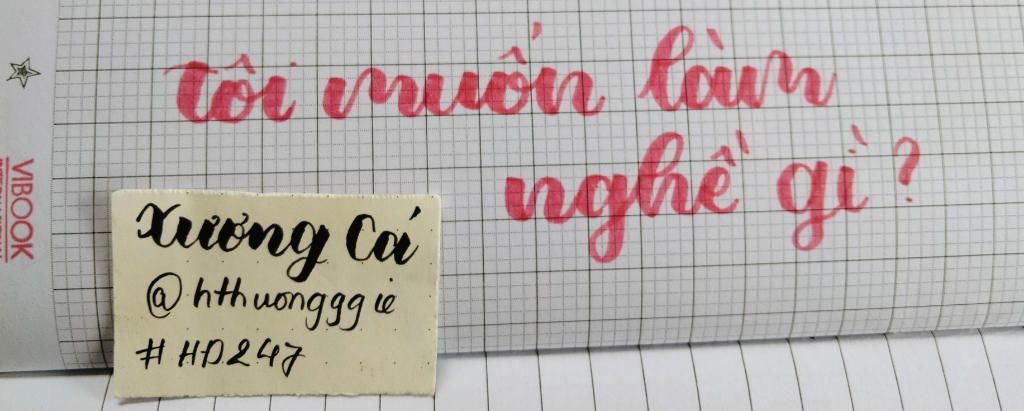 tôi muốn làm
nghề gì?
Xương Cá
@hthuongggie
#HD247
VIBOOK